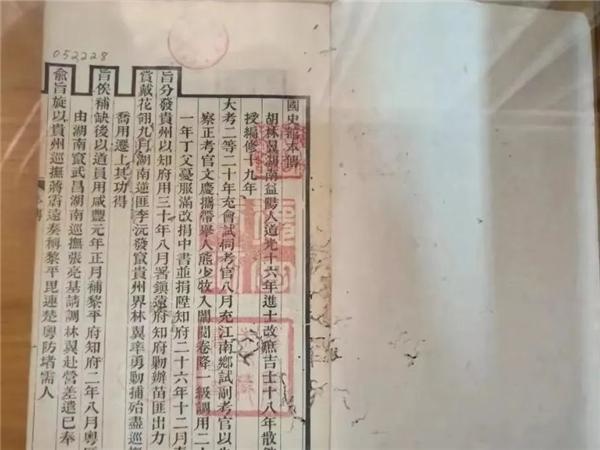 052228
國史館本傳
胡林翼湖南益陽人道光十六年進士改庶吉士十八年散館
授編修十九年
大考二等二十年充會試同考官八月充江南鄉試副考官以失
察正考官文慶攜帶舉人熊少牧入闈閱卷降一級調用二十
一年丁父憂服滿改捐中書並捐陞知府二十六年十二月奉
旨分發貴州以知府用三十年八月署鎮遠府知府勦辦苗匪出力
賞戴花翎九月湖南逆匪李沅發竄貴州界林翼率勇勦捕殆盡巡撫
喬用遷上其功得
旨俟補缺後以道員用咸豐元年正月補黎平府知府二年八月粵匪
由湖南竄武昌湖南巡撫張亮基請調林翼赴營差遣已奉
俞旨旋以貴州巡撫蔣霨遠奏稱黎平毘連楚粵防堵需人